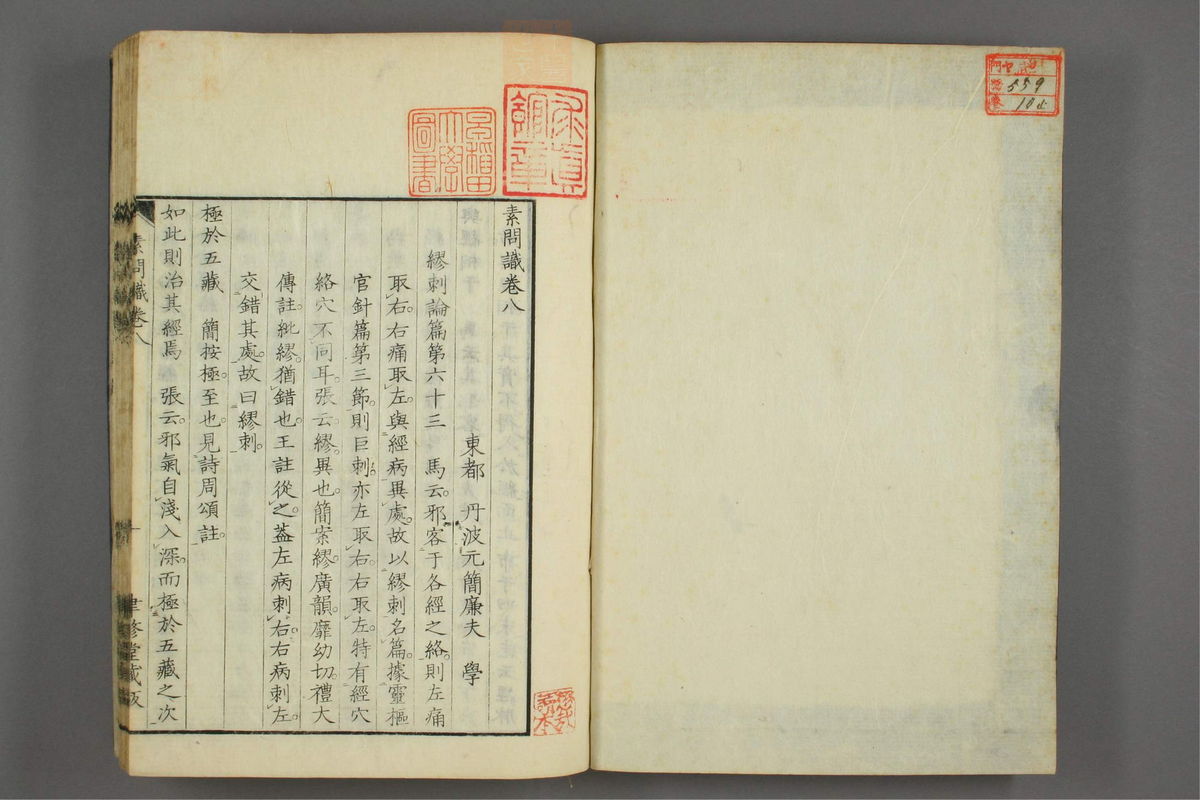 素問識卷八
東都 丹波元簡廉夫 學
繆刺論篇第六十三 馬云邪客于各經之絡則左痛
取右右痛取左與經病異處故以繆刺名篇據靈樞
官針篇第三節則巨刺亦左取右右取左特有經穴
絡穴不同耳張云繆異也簡案繆廣韻靡幼切禮大
傳註紕繆猶錯也王註從之蓋左病刺右右病刺左
交錯其處故曰繆刺
極於五藏 簡按極至也見詩周頌註
如此則治其經焉 張云邪氣自淺入深而極於五藏之次
素問識卷八
一
聿修堂藏板
圖書
559
105